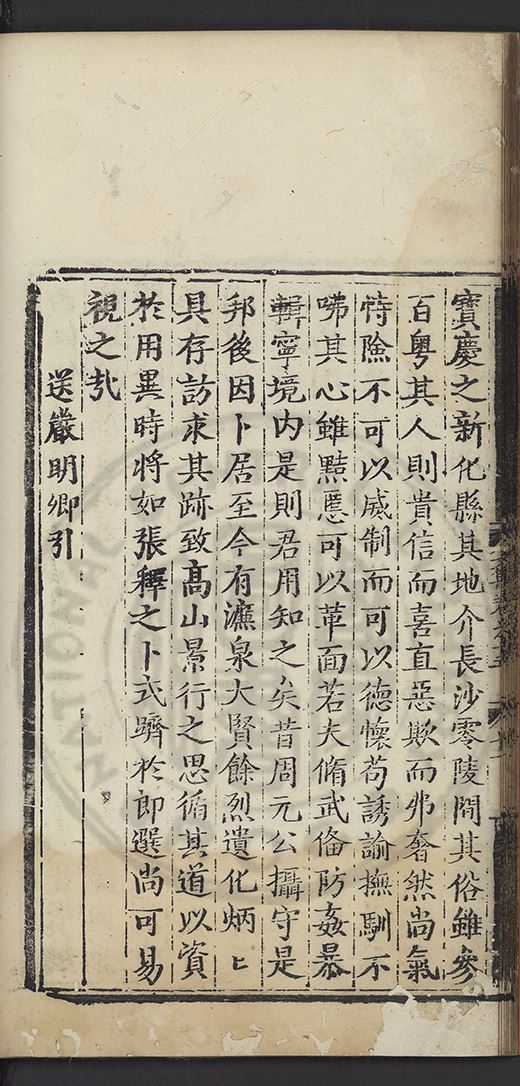 寳慶之新化縣其地介長沙零陵間其俗雖參
百粤其人則貴信而喜直惡欺而弗奢然尚氣
恃險不可以威制而可以德懷苟誘諭撫馴不
咈其心雖黠慝可以革面若夫脩武偹防姦暴
輯寧境内是則君用知之矣昔周元公攝守是
邦後因卜居至今有濂泉大賢餘烈遺化炳〻
具存訪求其跡致高山景行之思循其道以資
於用異時將如張釋之卜式躋於郎選尚可易
視之㢤
送嚴明卿引